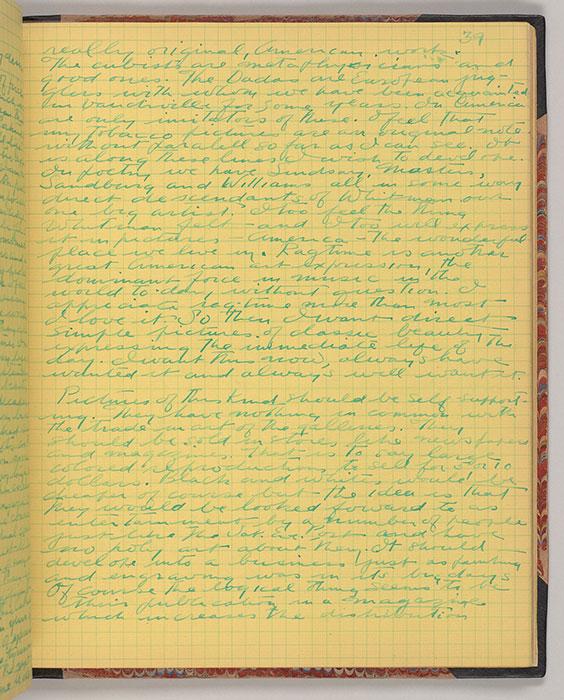 39
really original, American work.
The cubists are metaphysicians and
good ones. The Dadas are European jug-
glers with whom we have been acquainted
in vaudeville for some years. In America
are only imitators of these. I feel that
my tobacco pictures are an original note
without paralell so far as I can see. It
is along these lines I wish to develope.
In poetry we have Lindsay, Masters,
Sandburg and Williams all in some way
direct descendants of Whitman our
one big artist. I too feel the thing
Whitman felt - and I too will express
it in pictures - America - the wonderful
place we live in. Ragtime is another
great American art expression, the
dominant force in music in the
world today without question. I
appreciate ragtime more than most
I love it. So then I want direct
simple pictures of classic beauty
expressing the immediate life of the
day. I want this now, always have
wanted it and always will want it.
Pictures of this kind should be self support-
ing. They have nothing in common with
the trade in art of the galleries. They
should be sold in stores like newspapers
and magazines. That is to say large
colored reproductions to sell for 5 or 10
dollars. Black and whites would be
cheaper of course but the idea is that
they would be looked forward to as
entertainment by a number of people
just like the Sat. Eve. Post and have
no polite art about them. It should
develope into a business just as painting
and engraving was in its big days
Of course the logical thing seems to be
this publication in a magazine
which increases the distribution